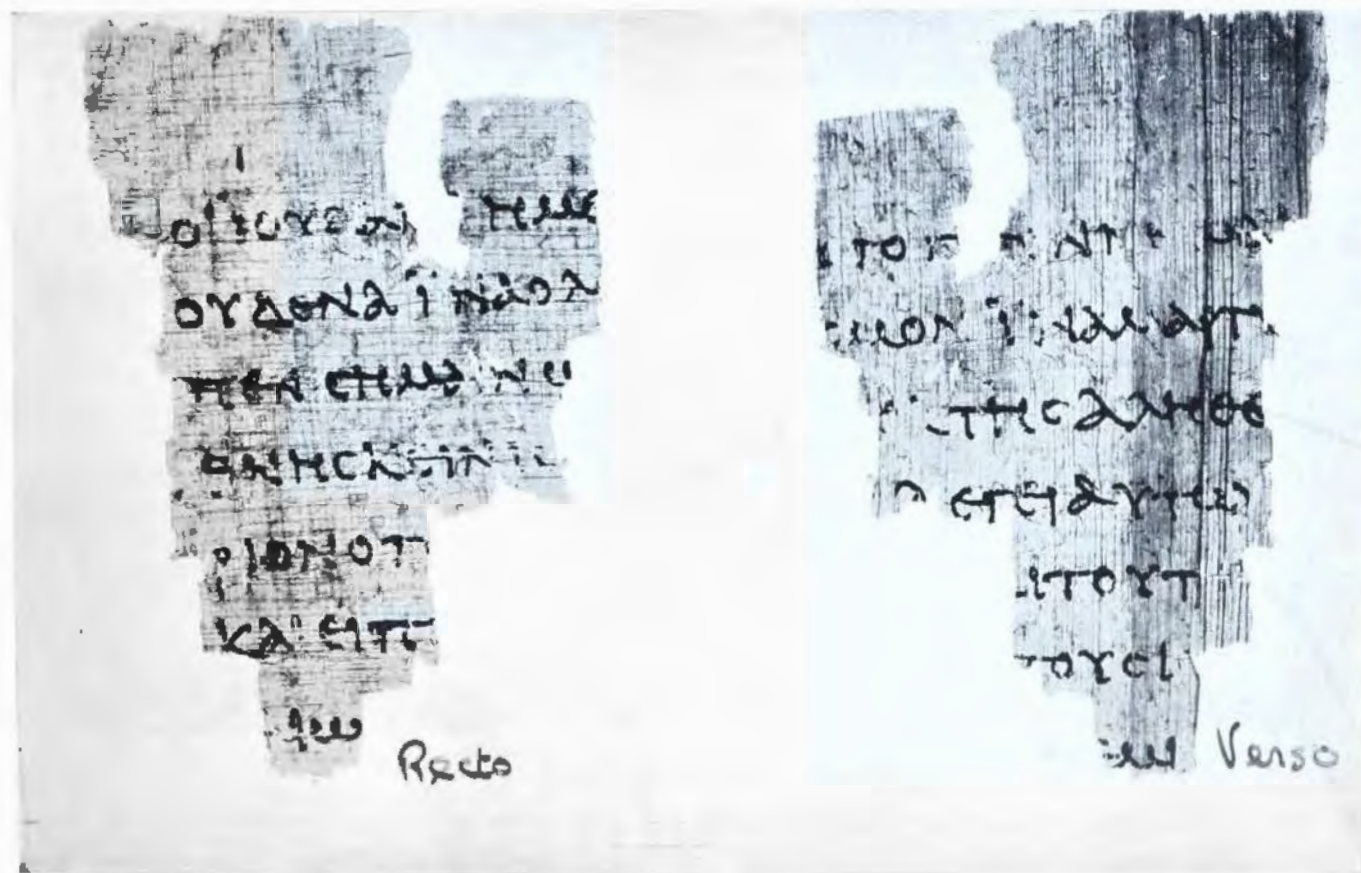 ΟΙ ΙΟΥΔΑΙ ΗΜΕ
ΟΥΔΕΝΑ ΪΝΑ Ο Λ
ΠΕΝ ϹΗΜΑΙΝΩ
ΘΝΗϹΚΕΙΝ ΙϹ
ΡΙΟΝ Ο Π
ΚΑΙ ΕΙΠ
ΑΙΩ
Recto
ΤΟ ΓΕΓΕΝΝΗΜΑΙ
ϹΜΟΝ ΪΝΑ ΜΑΡΤΥ
ΤΗϹ ΑΛΗΘΕ
ΛΕΓΕΙ ΑΥΤΩ
ΑΙ ΤΟΥΤ
ΤΟΥϹ Ι
ΜΙ
Verso